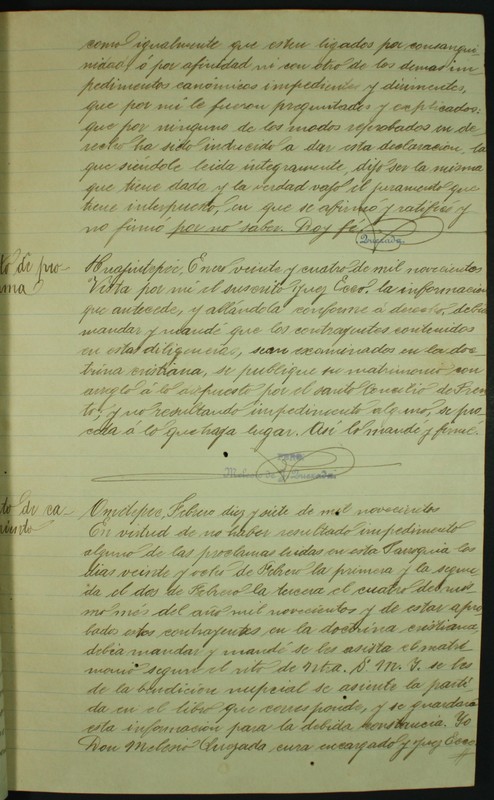 como igualmente que esten ligados por consangui-
nidad, ó por afinidad ni con otro de los demas im-
pedimentos canónicos impedientes y dirimentes,
que por mi le fueron preguntados y explicados:
que por ninguno de los modos reprobados en de-
recho ha sido inducido a dar esta declaracion, la
que siéndole leida integramente, dijo ser la misma
que tiene dada y la verdad vajo el juramento que
tiene interpuesto, en que se afirmó y ratificó y
no firmó por no saber. Doy fé.
Quezada
to de pro-
ma
Enero veinte y cuatro de mil novecientos
Vista por mi el suscrito Juez Ecco. la informacion
que antecede, y allándola conforme á derecho, debia
mandar y mandé que los contrayentes contenidos
en estas diligencias, sean examinados en la doc-
trina cristiana, se publique su matrimonio con
arreglo á lo dispuesto por el santo Concilio de Tren-
to, y no resultando impedimento alguno, se pro-
ceda á lo que haya lugar. Así lo mandé y firmé.
Melesio de J. Quezada
to de ca-
Ometepec, Febrero diez y siete de mil novecientos
En virtud de no haber resultado impedimento
alguno de las proclamas leidas en esta Parroquia los
dias veinte y ocho de Febrero la primera y la segun-
da el dos de Febrero la tercera el cuatro del mis-
mo més del año mil novecientos y de estar apro-
bados estos contrayentes en la doctrina cristiana
debia mandar y mandé se les asista el matri-
monio segun el rito de Ntra. S. M. Y. se les
dé la bendicion nupcial se asiente la parti-
da en el libro que corresponde, y se guardará
esta informacion para la debida constancia. Yo
Don Melesio Quezada cura encargado y Juez Ecco.